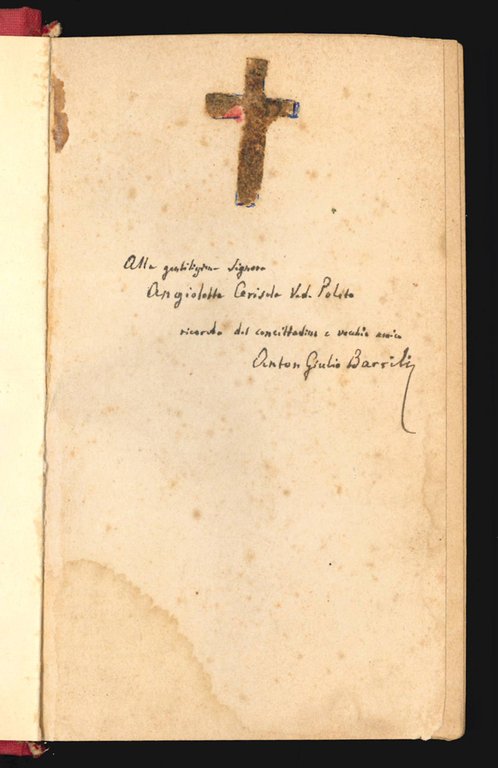 Alla gentilissima Signora
Angioletta Cerisola Ved. Polito
ricordo del concittadino e vecchio amico
Anton Giulio Barrili